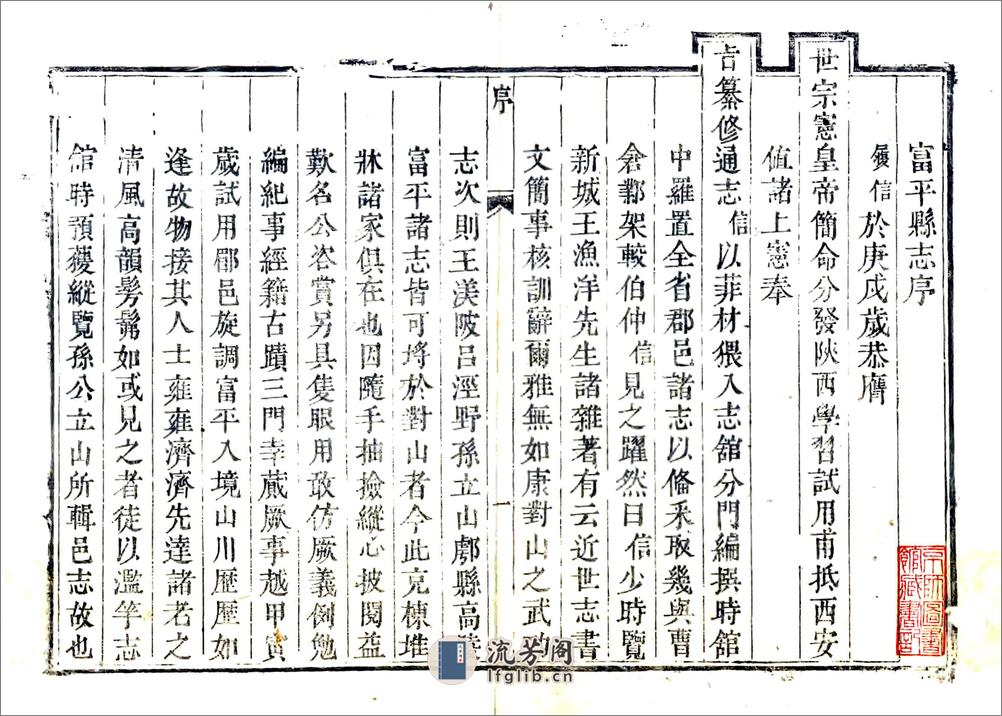 富平縣志序
履信於庚戌歲恭膺
世宗憲皇帝簡命分發陝西學習試用甫抵西安
值諸上憲奉
旨纂修通志信以菲材猥入志舘分門編撰時舘
中羅置全省郡邑諸志以俻采取幾與曹
倉鄴架較伯仲信見之躍然曰信少時覽
新城王漁洋先生諸雜著有云近世志書
文簡事核訓辭爾雅無如康對山之武功
序
一
志次則王渼陂呂涇野孫立山鄠縣高陵
富平諸志皆可埓於對山者今此充棟堆
牀諸家俱在也因隨手抽撿縱心披閱益
歎名公咨賞另具隻眼用敢仿厥義例勉
編紀事經籍古蹟三門幸蕆厥事越甲寅
歲試用郿邑旋調富平入境山川歷歷如
逢故物接其人士雍雍濟濟先達諸者之
清風高韻髣髴如或見之者徒以濫竽志
舘時預獲縱覽孫公立山所輯邑志故也
京師圖書館藏書印
流芳阁
lfglib.cn